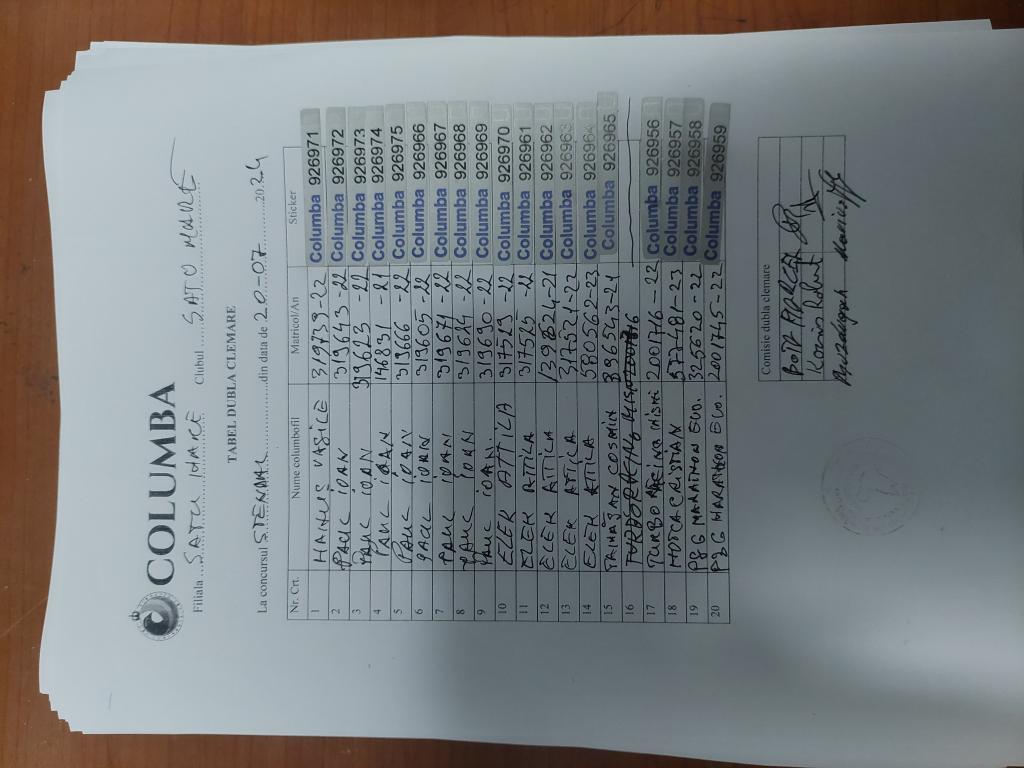 COLUMBA
Filiala SATU MARE Clubul SATU MARE
TABEL DUBLA CLEMARE
La concursul STERNAL din data de 20-07 2024
Nr. Crt. Nume columbofil Matricol/An Sticker
1 VASILE 319739-22 Columba 926971
2 PAUC IOAN 319643-22 Columba 926972
3 PAUC IOAN 319623-22 Columba 926973
4 PAUC IOAN 146831-21 Columba 926974
5 PAUC IOAN 319666-22 Columba 926975
6 PAUC IOAN 319605-22 Columba 926966
7 PAUC IOAN 319671-22 Columba 926967
8 PAUC IOAN 319624-22 Columba 926968
9 PAUC IOAN. 319690-22 Columba 926969
10 ELEK ATTILA 317579-22 Columba 926970
11 ELEK ATTILA 317525-22 Columba 926961
12 ELEK ATTILA 139524-21 Columba 926962
13 ELEK ATTILA 317521-22 Columba 926963
14 ELEK ATTILA 580562-23 Columba 926964
15 COSMIN 396543-21 Columba 926965
16
17 TURBO MISHI 200176-22 Columba 926956
18 MOTCA CRISTIAN 572181-23 Columba 926957
19 P&G MARATHON EVO. 325620-22 Columba 926958
20 P&G MARATHON EVO. 2001745-22 Columba 926959
Comisie dubla clemare
BOTA MARCEL
Robert